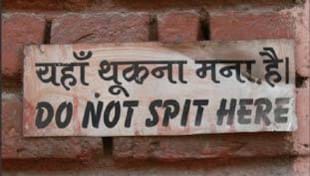 यहाँ थूकना मना है।
DO NOT SPIT HERE